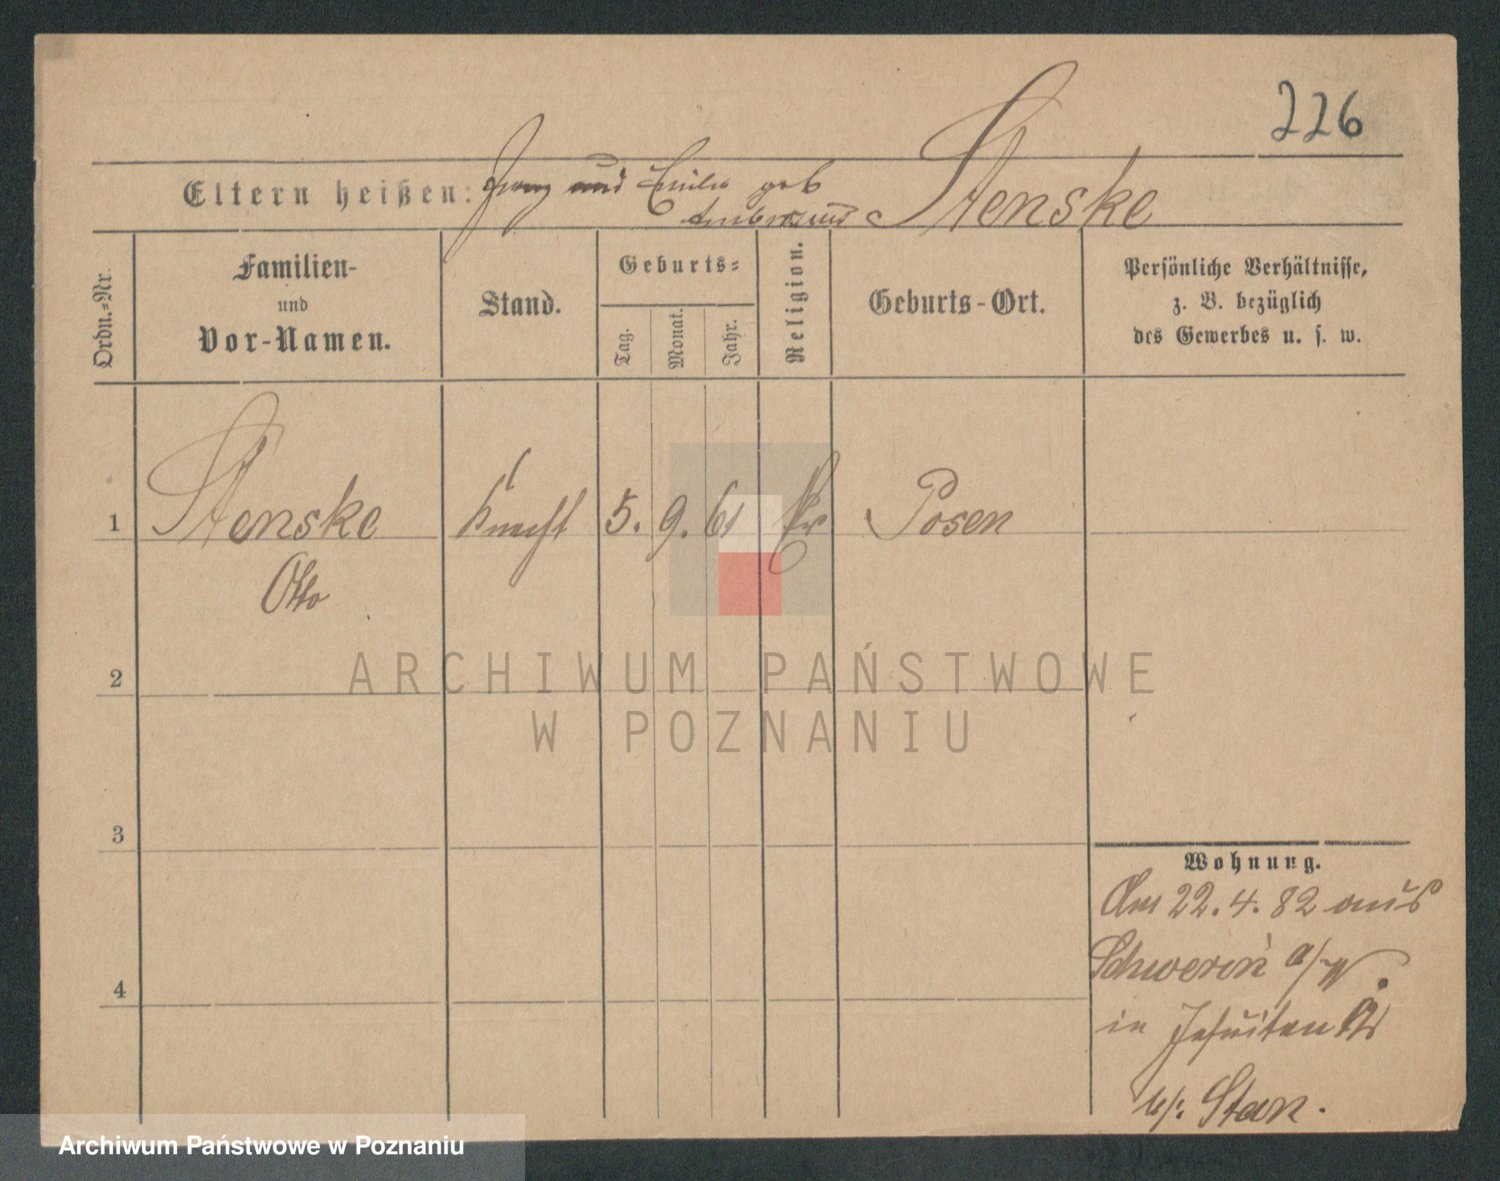 226
Eltern heißen: Franz und Emilie geb
Stenske
Ordn.-Nr.
Familien-
und
Vor-Namen.
Stand.
Geburts-
Tag.
Monat.
Jahr.
Religion.
Geburts-Ort.
Persönliche Verhältnisse,
z. B. bezüglich
des Gewerbes u. s. w.
1 Stenske Knecht 5. 9. 61 Posen
Otto
2
3
4
Wohnung.
Am 22. 4. 82 aus
Schwerin a/W.
in Jesuiten
b/. Stan.
ARCHIWUM PAŃSTWOWE
W POZNANIU
Archiwum Państwowe w Poznaniu